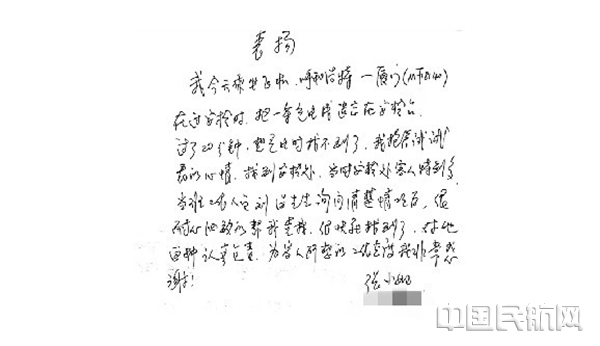 表扬
我今天乘坐飞机，呼和浩特—厦门
在过安检时，把一条包 遗忘在安检台
过了20分钟，想起时找不到了，我抱着试试
看的心情，找到安检处，当时安检处客人特别多
当班工作人员刘 先生询问清楚情况后，很
耐心的 帮我查找，很快就找到了，对他
这种认真负责，为客人所想的工作态度我非常感
谢！
张小
中国民航网